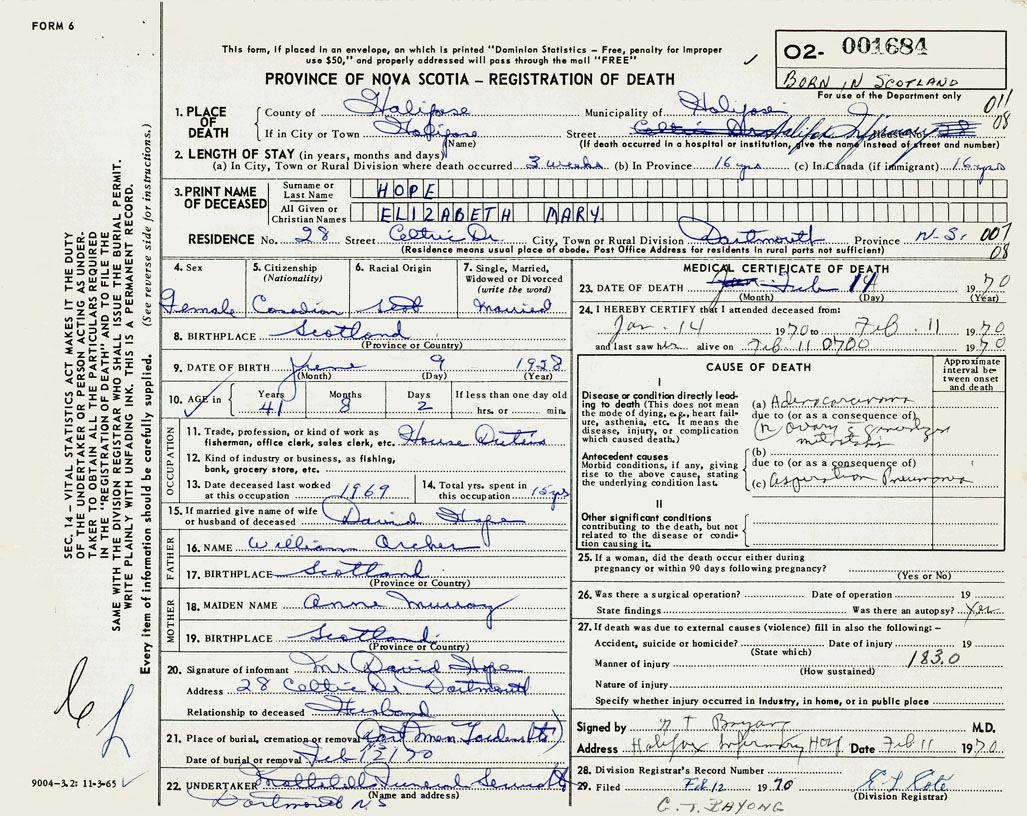 FORM 6
This form, if placed in an envelope, on which is printed "Dominion Statistics – Free, penalty for improper
use $50," and properly addressed will pass through the mail "FREE"
PROVINCE OF NOVA SCOTIA – REGISTRATION OF DEATH
02- 001684
BORN IN SCOTLAND
For use of the Department only
011
08
1. PLACE OF DEATH
County of Halifax Municipality of Halifax
If in City or Town Halifax Street Celtic Dr. Halifax Infirmary House No. 28
(Name) (If death occurred in a hospital or institution, give the name instead of street and number)
2. LENGTH OF STAY (in years, months and days)
(a) In City, Town or Rural Division where death occurred 3 weeks (b) In Province 16 yrs (c) In Canada (if immigrant) 16 yrs
3. PRINT NAME OF DECEASED
Surname or Last Name HOPE
All Given or Christian Names ELIZABETH MARY
RESIDENCE No. 28 Street Celtic Dr. City, Town or Rural Division Dartmouth Province N.S. 007
08
(Residence means usual place of abode. Post Office Address for residents in rural parts not sufficient)
4. Sex
Female
5. Citizenship (Nationality)
Canadian
6. Racial Origin
Scot
7. Single, Married, Widowed or Divorced (write the word)
Married
8. BIRTHPLACE Scotland
(Province or Country)
9. DATE OF BIRTH June 9 1928
(Month) (Day) (Year)
10. AGE in Years Months Days If less than one day old
41 8 2 hrs. or min.
OCCUPATION
11. Trade, profession, or kind of work as House Duties
fisherman, office clerk, sales clerk, etc.
12. Kind of industry or business, as fishing,
bank, grocery store, etc.
13. Date deceased last worked at this occupation 1969
14. Total yrs. spent in this occupation 15 yrs
15. If married give name of wife or husband of deceased David Hope
FATHER
16. NAME William Archer
17. BIRTHPLACE Scotland
(Province or Country)
MOTHER
18. MAIDEN NAME Anne Murray
19. BIRTHPLACE Scotland
(Province or Country)
20. Signature of informant Mr David Hope
Address 28 Celtic Dr Dartmouth
Relationship to deceased Husband
21. Place of burial, cremation or removal
Date of burial or removal Feb 12/70
22. UNDERTAKER Funeral
(Name and address)
Dartmouth N.S
MEDICAL CERTIFICATE OF DEATH
23. DATE OF DEATH Feb 11 1970
(Month) (Day) (Year)
24. I HEREBY CERTIFY that I attended deceased from:
Jan. 14 1970 to Feb. 11 1970
and last saw her alive on Feb. 11 0700 1970
CAUSE OF DEATH
Approximate interval between onset and death
I
Disease or condition directly leading to death (This does not mean the mode of dying, e.g., heart failure, asthenia, etc. It means the disease, injury, or complication which caused death.)
(a) Adenocarcinoma
due to (or as a consequence of)
Ovary generalized
metastasis
Antecedent causes
Morbid conditions, if any, giving rise to the above cause, stating the underlying condition last.
(b)
due to (or as a consequence of)
(c) Aspiration Pneumonia
II
Other significant conditions
contributing to the death, but not related to the disease or condition causing it.
25. If a woman, did the death occur either during
pregnancy or within 90 days following pregnancy?
(Yes or No)
26. Was there a surgical operation? Date of operation 19
State findings Was there an autopsy? Yes
27. If death was due to external causes (violence) fill in also the following: –
Accident, suicide or homicide? Date of injury 19
(State which)
Manner of injury 183.0
(How sustained)
Nature of injury
Specify whether injury occurred in industry, in home, or in public place
Signed by M.D.
Address Halifax Infirmary Date Feb 11 1970
28. Division Registrar's Record Number
29. Filed Feb 12 1970
(Division Registrar)
G. T. BAYONG
SEC. 14 – VITAL STATISTICS ACT MAKES IT THE DUTY
OF THE UNDERTAKER OR PERSON ACTING AS UNDER-
TAKER TO OBTAIN ALL THE PARTICULARS REQUIRED
IN THE "REGISTRATION OF DEATH" AND TO FILE THE
SAME WITH THE DIVISION REGISTRAR WHO SHALL ISSUE THE BURIAL PERMIT.
WRITE PLAINLY WITH UNFADING INK. THIS IS A PERMANENT RECORD.
Every item of information should be carefully supplied. (See reverse side for instructions.)
9004–3.2: 11-3-65